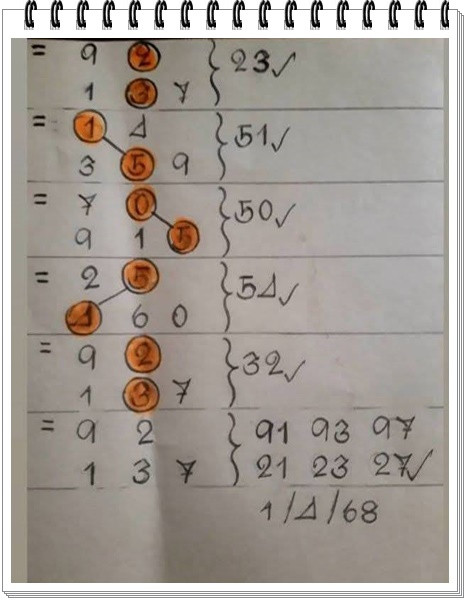 = 9 2 } 23✓
1 3 7
= 1 4 } 51✓
3 5 9
= 7 0 } 50✓
9 1 5
= 2 5 } 54✓
4 6 0
= 9 2 } 32✓
1 3 7
= 9 2 } 91 93 97
1 3 7 21 23 27✓
1/4/68